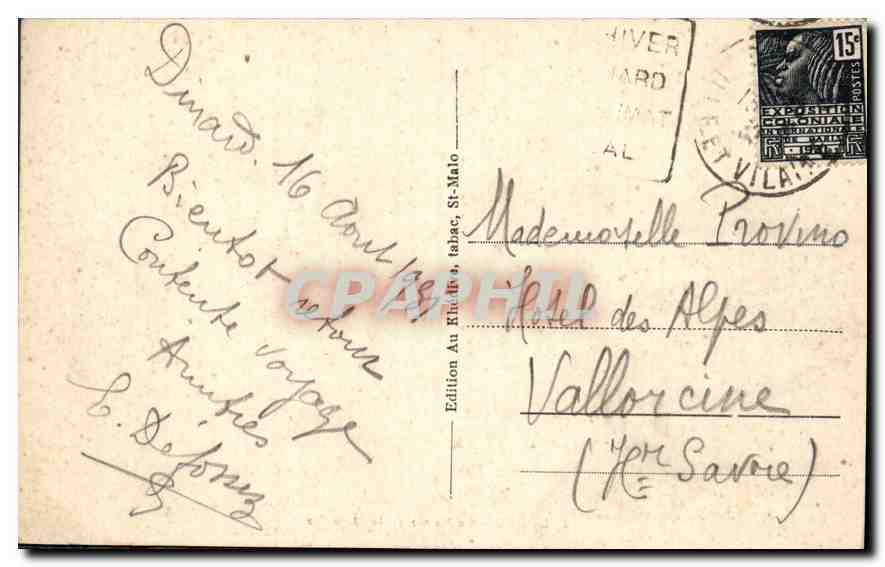 Dinard. 16 Aout 1931
Bientot retour
Contente voyage
Amitiés
E. Defossez
Edition Au Khédive, tabac, St-Malo
HIVER
NARD
IMAT
AL
ILLE ET VILAINE
15c
POSTES
EXPOSITION
COLONIALE
INTERNATIONALE
DE PARIS
1931
RF RF
Mademoiselle Provino
Hotel des Alpes
Vallorcine
(Hte Savoie)
CPAPHIL